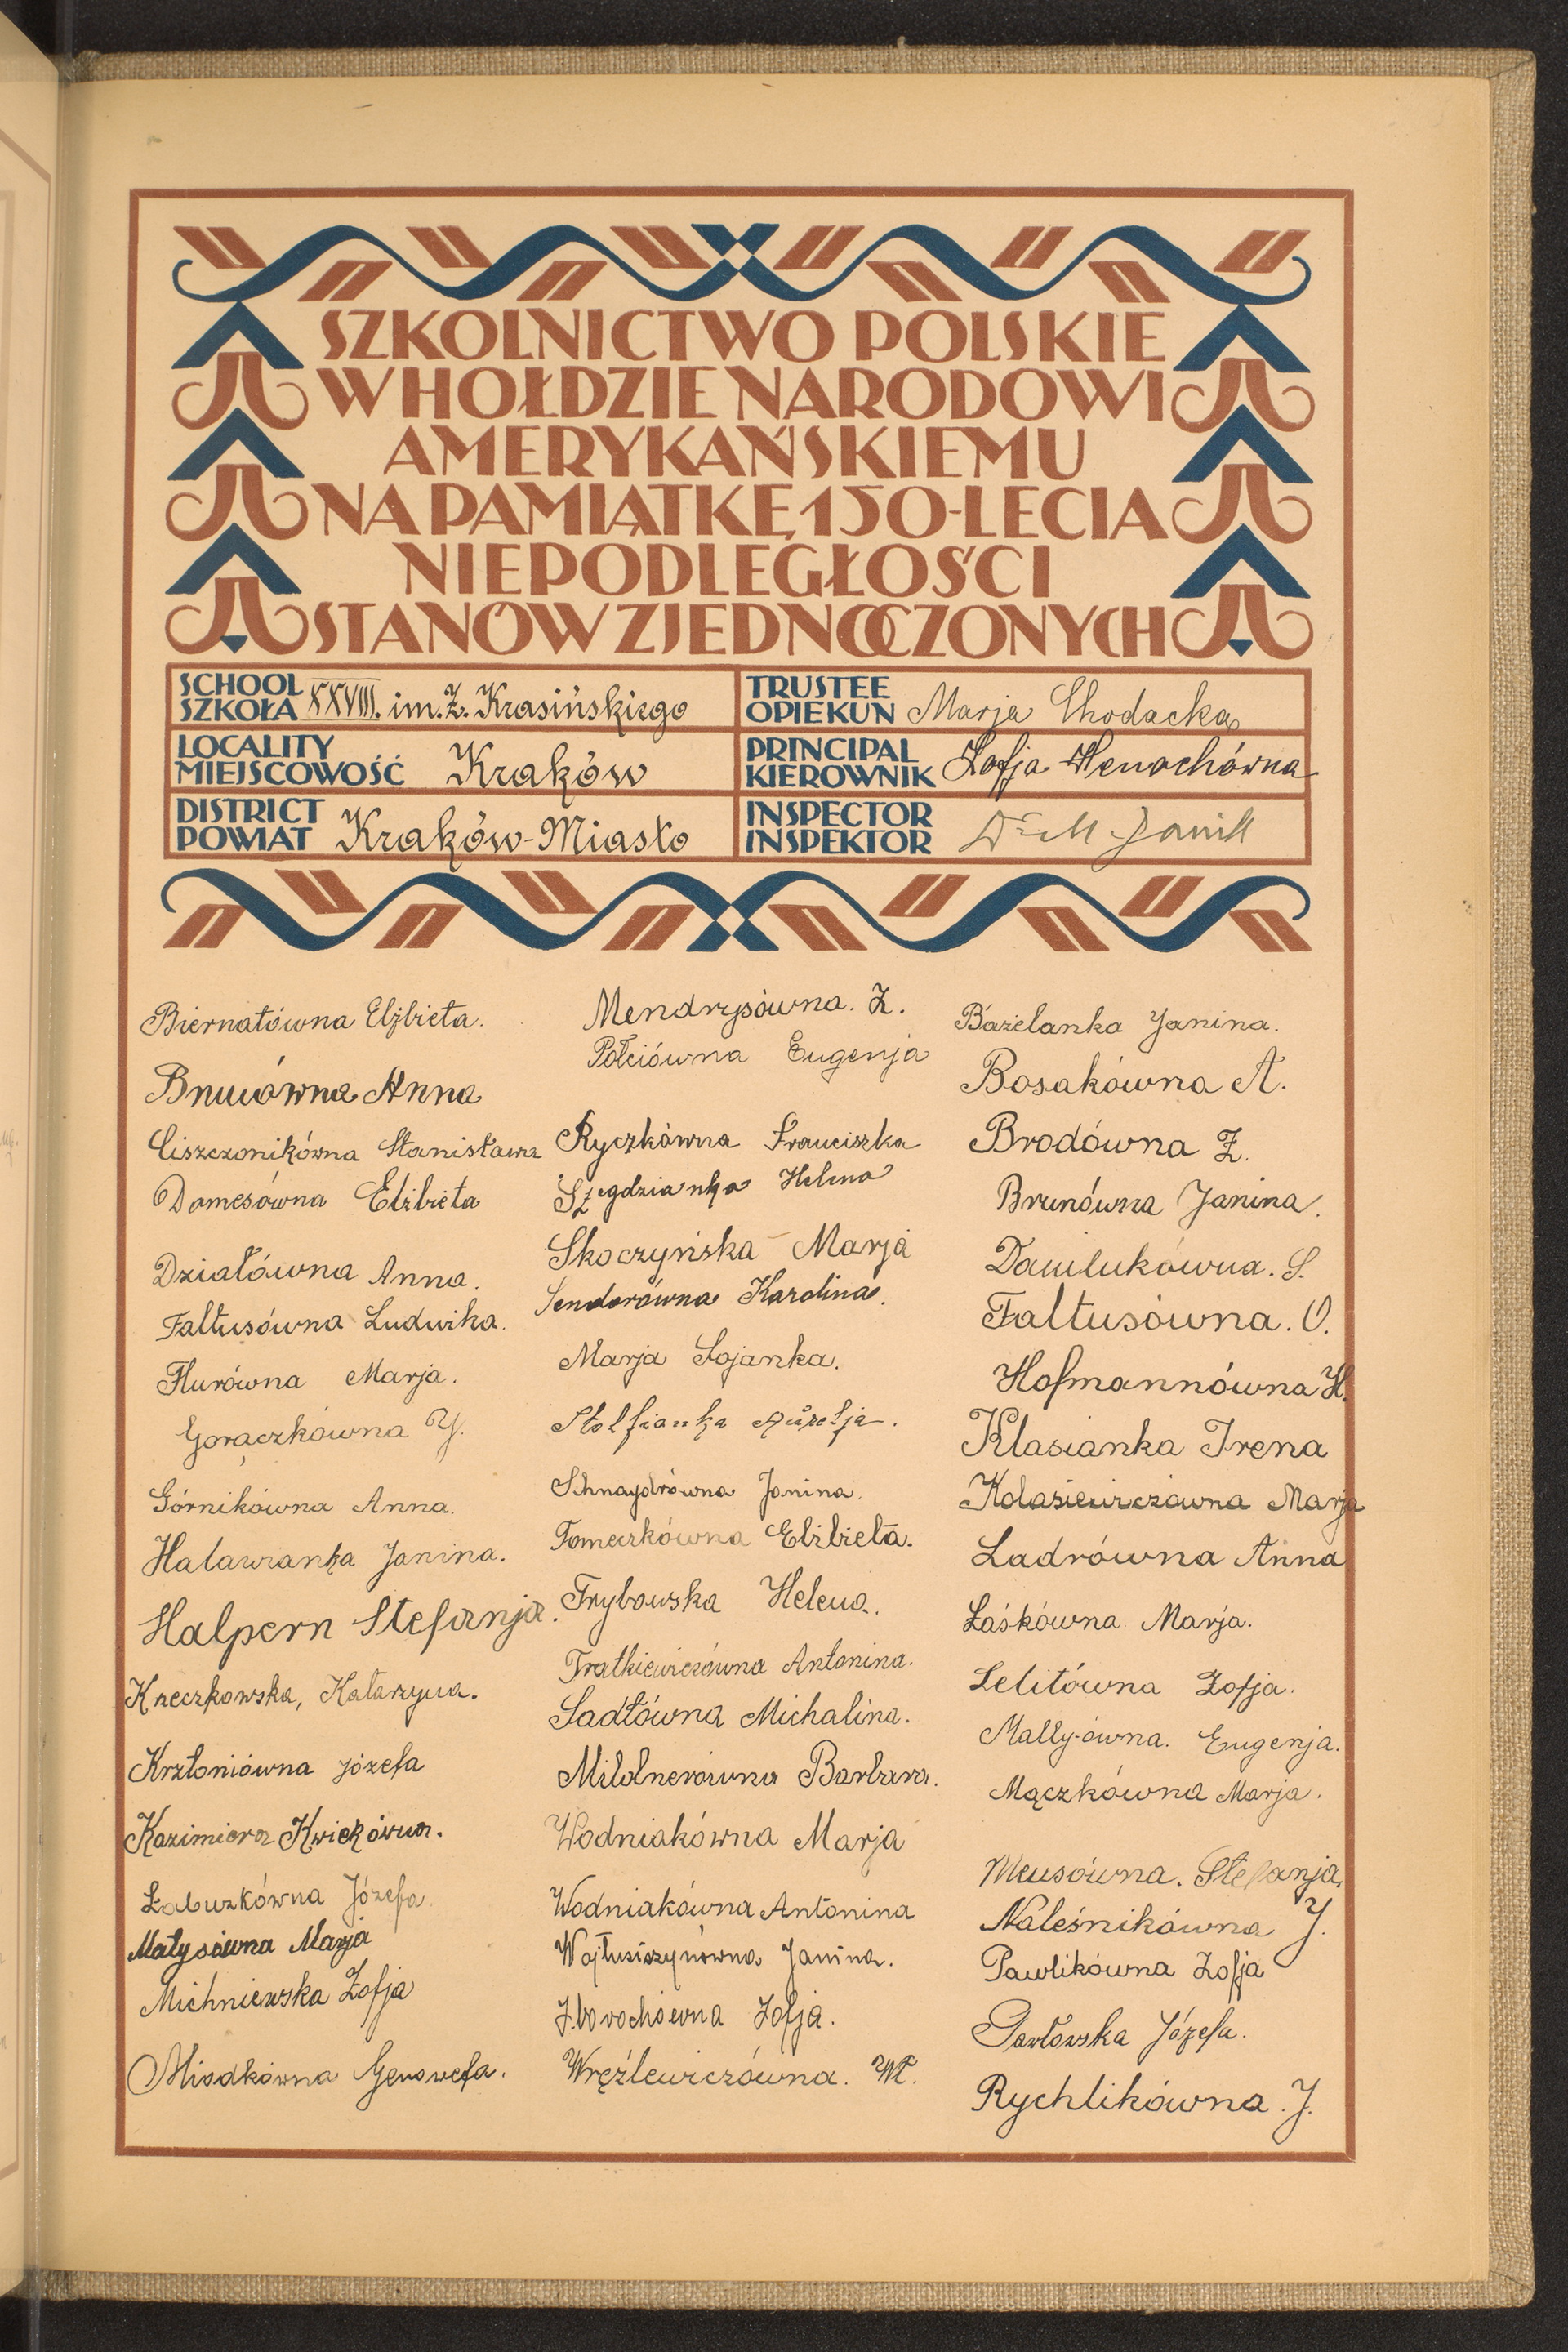 SZKOLNICTWO POLSKIE
W HOŁDZIE NARODOWI
AMERYKAŃSKIEMU
NA PAMIĄTKĘ 150-LECIA
NIEPODLEGŁOŚCI
STANÓW ZJEDNOCZONYCH
SCHOOL
SZKOŁA XXVIII. im. Z. Krasińskiego
LOCALITY
MIEJSCOWOŚĆ Kraków
DISTRICT
POWIAT Kraków-Miasto
TRUSTEE
OPIEKUN Marja Chodacka
PRINCIPAL
KIEROWNIK Zofja Henochówna
INSPECTOR
INSPEKTOR Dr M
Biernatówna Elżbieta.
Anna
Ciszczonikówna Stanisława
Domesówna Elżbieta
Działówna Anna.
Faltusówna Ludwika.
Flurówna Marja.
Gorączkówna J.
Górnikówna Anna.
Halawianka Janina.
Halpern Stefanja.
Kneczkowska, Katarzyna.
Krztoniówna Józefa
Kazimiera Kwiekówna.
Łabuzkówna Józefa.
Małysówna Marja
Michniewska Zofja
Miodkówna Genowefa.
Mendrysówna. Z.
Połciówna Eugenja
Ryczkówna Franciszka
Szegdzianka Helena
Skoczyńska Marja
Sendorówna Karolina.
Marja Sojanka.
Stolfianka Aurelja.
Schnaydrówna Janina.
Tomeczkówna Elżbieta.
Trybowska Helena.
Tratkiewiczówna Antonina.
Sadłówna Michalina.
Barbara.
Wodniakówna Marja
Wodniakówna Antonina
Wojtusiszynówna Janina.
Zofja.
Wręźlewiczówna. Wł.
Bażelanka Janina.
Bosakówna A.
Brodówna Z.
Brunówna Janina.
Danilukówna. S.
Faltusówna. O.
Hofmannówna H.
Klasianka Irena
Kolasiewiczówna Marja
Ladrówna Anna
Łaśkówna Marja.
Lelitówna Zofja.
Mally-ówna. Eugenja.
Mączkówna Marja.
Meusówna. Stefanja.
Naleśnikówna J.
Pawlikówna Zofja
Pawłowska Józefa.
Rychlikówna. J.